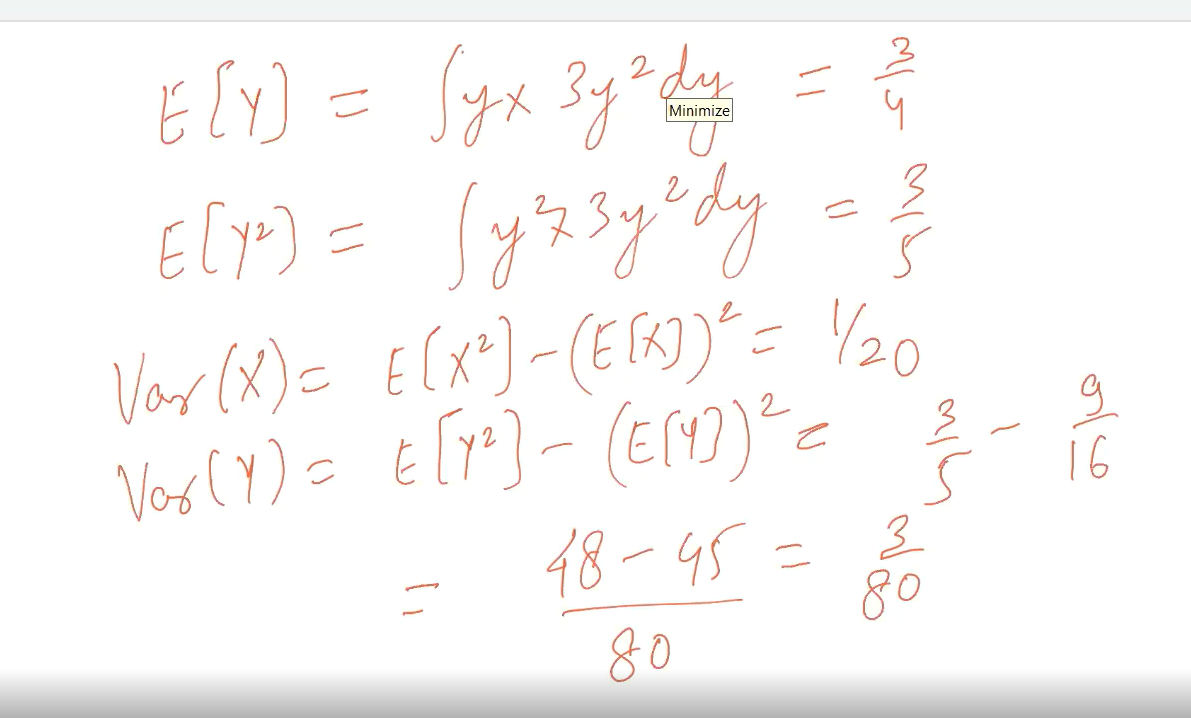 E[Y] = ∫ y × 3y² dy = 3/4
Minimize
E[Y²] = ∫ y² × 3y² dy = 3/5
Var(X) = E[X²] - (E[X])² = 1/20
Var(Y) = E[Y²] - (E[Y])² = 3/5 - 9/16
= (48 - 45)/80 = 3/80